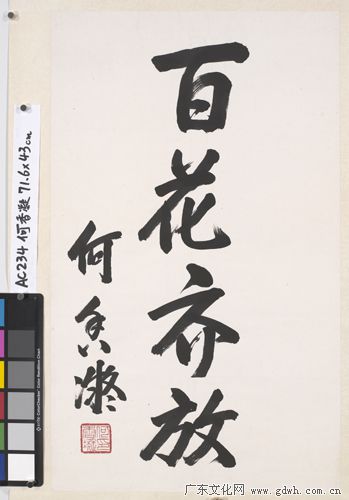 百花齐放
何香凝
AC234 何香凝 71.6×43cm
广东文化网 www.gdwh.com.cn